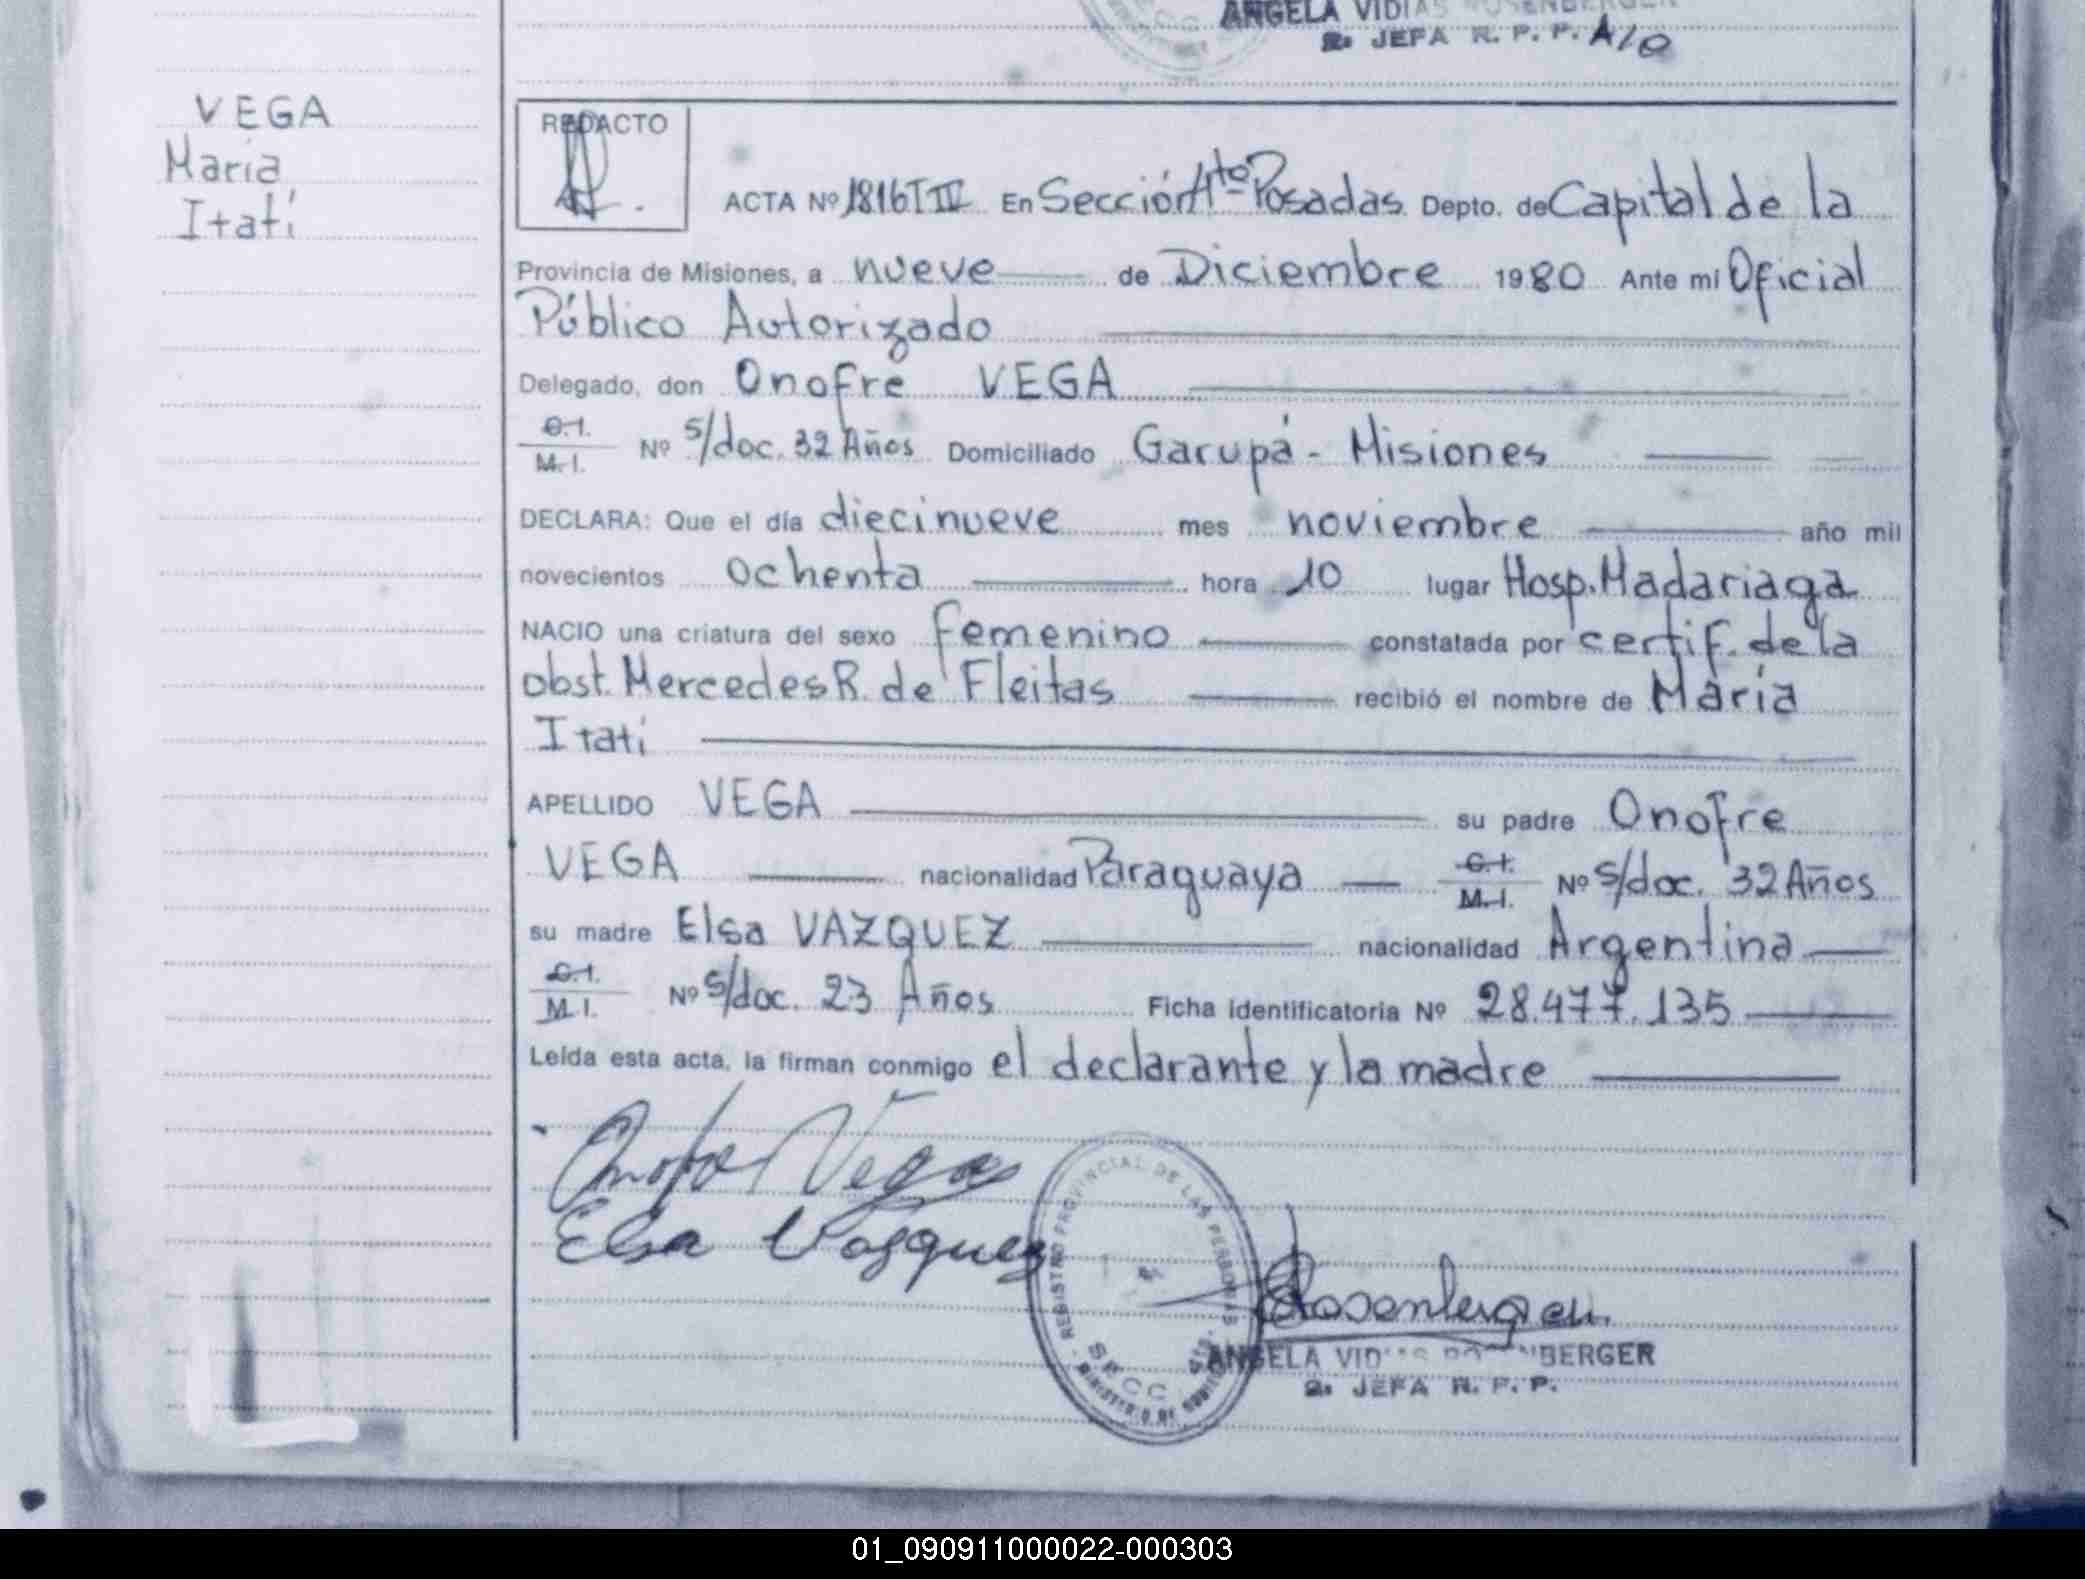 ANGELA VIDIAS ROSENBERGER
2: JEFA R. P. P. A/C
VEGA
María
Itatí
REDACTO
ACTA Nº 1816 T IV En Sección 4to Posadas Depto. de Capital de la
Provincia de Misiones, a nueve de Diciembre 1980 Ante mi Oficial
Público Autorizado
Delegado, don Onofre VEGA
C.I. / M.I. Nº s/doc. 32 Años Domiciliado Garupá - Misiones
DECLARA: Que el día diecinueve mes noviembre año mil
novecientos ochenta hora 10 lugar Hosp. Madariaga
NACIO una criatura del sexo femenino constatada por certif. de la
obst. Mercedes R. de Fleitas recibió el nombre de María
Itatí
APELLIDO VEGA su padre Onofre
VEGA nacionalidad Paraguaya C.I. / M.I. Nº s/doc. 32 Años
su madre Elsa VAZQUEZ nacionalidad Argentina
C.I. / M.I. Nº s/doc. 23 Años Ficha identificatoria Nº 28.477.135
Leída esta acta, la firman conmigo el declarante y la madre
Onofre Vega
Elsa Vazquez
REGISTRO PROVINCIAL DE LAS PERSONAS
MINISTERIO DE GOBIERNO
Rosenberger
ANGELA VIDIAS ROSENBERGER
2: JEFA R. P. P.
01_090911000022-000303